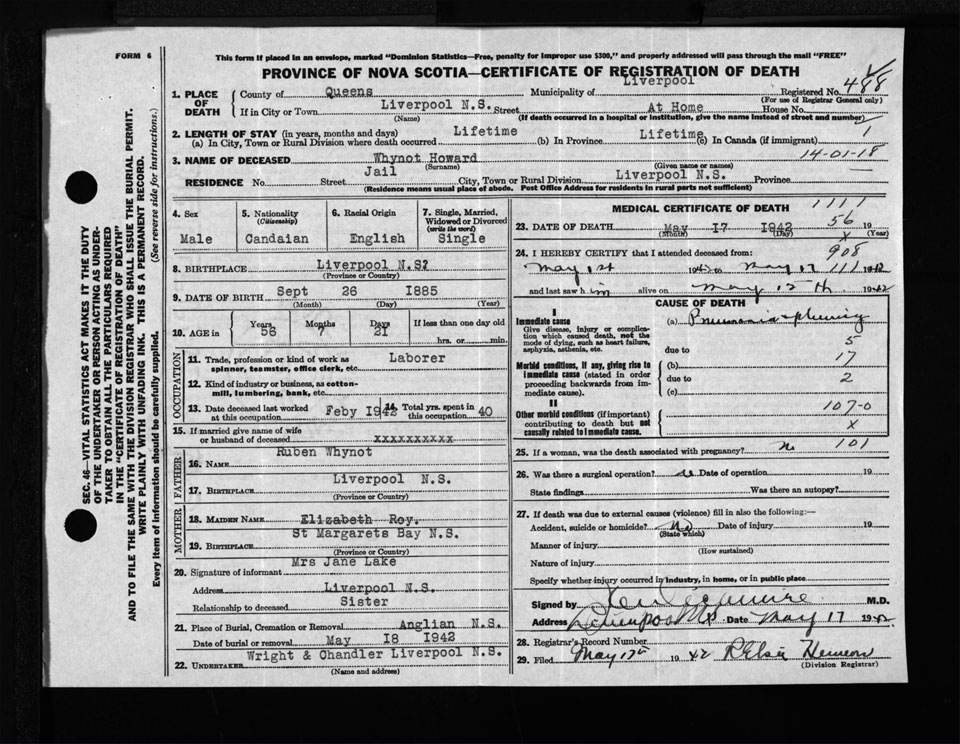 FORM 6
This form if placed in an envelope, marked "Dominion Statistics—Free, penalty for improper use $300," and properly addressed will pass through the mail "FREE"
PROVINCE OF NOVA SCOTIA—CERTIFICATE OF REGISTRATION OF DEATH
1. PLACE OF DEATH County of Queens Municipality of Liverpool Registered No. 488
(For use of Registrar General only)
If in City or Town Liverpool N.S. Street At Home House No.
(Name) (If death occurred in a hospital or institution, give the name instead of street and number)
2. LENGTH OF STAY (in years, months and days)
(a) In City, Town or Rural Division where death occurred Lifetime (b) In Province Lifetime (c) In Canada (if immigrant) 1
14-01-18
3. NAME OF DECEASED Whynot Howard
(Surname) (Given name or names)
RESIDENCE No. Street Jail City, Town or Rural Division Liverpool N.S. Province
(Residence means usual place of abode. Post Office Address for residents in rural parts not sufficient)
4. Sex Male
5. Nationality (Citizenship) Candaian
6. Racial Origin English
7. Single, Married, Widowed or Divorced (write the word) Single
8. BIRTHPLACE Liverpool N.S?
(Province or Country)
9. DATE OF BIRTH Sept 26 1885
(Month) (Day) (Year)
10. AGE in Years 56 Months 7 Days 21 If less than one day old hrs. or min.
OCCUPATION
11. Trade, profession or kind of work as spinner, teamster, office clerk, etc. Laborer
12. Kind of industry or business, as cotton-mill, lumbering, bank, etc.
13. Date deceased last worked at this occupation Feby 1942 14. Total yrs. spent in this occupation 40
15. If married give name of wife or husband of deceased xxxxxxxxxx
FATHER
16. NAME Ruben Whynot
17. BIRTHPLACE Liverpool N.S.
(Province or Country)
MOTHER
18. MAIDEN NAME Elizabeth Roy.
19. BIRTHPLACE St Margarets Bay N.S.
(Province or Country)
20. Signature of informant Mrs Jane Lake
Address Liverpool N.S.
Relationship to deceased Sister
21. Place of Burial, Cremation or Removal Anglian N.S.
Date of burial or removal May 18 1942
22. UNDERTAKER Wright & Chandler Liverpool N.S.
(Name and address)
MEDICAL CERTIFICATE OF DEATH 1111
56
23. DATE OF DEATH May 17 1942 19
(Month) (Day) (Year)
x
908
24. I HEREBY CERTIFY that I attended deceased from:
May 1st 1942 to May 17 111 1942
and last saw him alive on May 15th 1942
CAUSE OF DEATH
I
Immediate cause
Give disease, injury or complication which caused death, not the mode of dying, such as heart failure, asphyxia, asthenia, etc.
(a) Pneumonia & pleurisy
5
due to
17
Morbid conditions, if any, giving rise to immediate cause (stated in order proceeding backwards from immediate cause).
(b)
due to 2
(c)
II
Other morbid conditions (if important) contributing to death but not causally related to immediate cause.
107-0
x
25. If a woman, was the death associated with pregnancy? no 101
26. Was there a surgical operation? Date of operation 19
State findings Was there an autopsy?
27. If death was due to external causes (violence) fill in also the following:—
Accident, suicide or homicide? No Date of injury 19
(State which)
Manner of injury
(How sustained)
Nature of injury
Specify whether injury occurred in industry, in home, or in public place
Signed by M.D.
Address Liverpool NS Date May 17 1942
28. Registrar's Record Number
29. Filed May 17th 1942
(Division Registrar)
SEC. 46—VITAL STATISTICS ACT MAKES IT THE DUTY
OF THE UNDERTAKER OR PERSON ACTING AS UNDER-
TAKER TO OBTAIN ALL THE PARTICULARS REQUIRED
IN THE "CERTIFICATE OF REGISTRATION OF DEATH"
AND TO FILE THE SAME WITH THE DIVISION REGISTRAR WHO SHALL ISSUE THE BURIAL PERMIT.
WRITE PLAINLY WITH UNFADING INK. THIS IS A PERMANENT RECORD.
Every item of information should be carefully supplied. (See reverse side for instructions.)